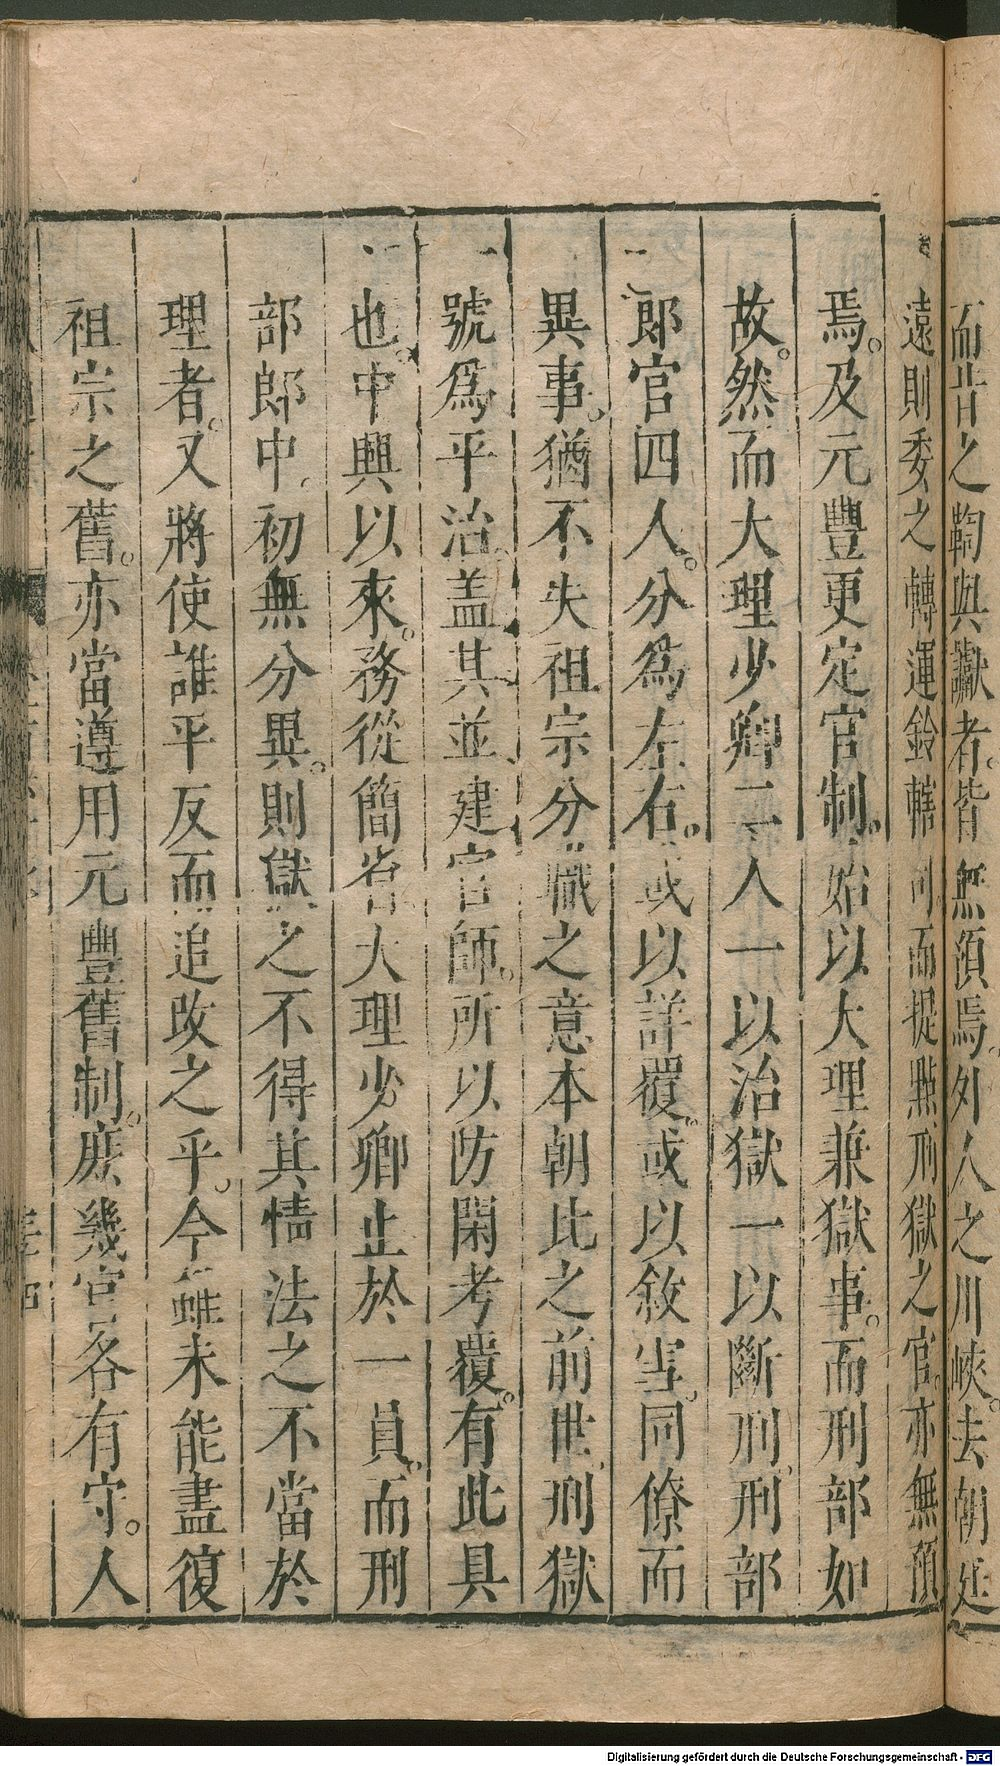 而昔之鞫與讞者。皆無預焉。外人之川峽。去朝廷
遠則委之轉運鈐轄司而提㸃刑獄之官。亦無預
焉。及元豐更定官制。始以大理兼獄事。而刑部如
故。然而大理少卿二人一以治獄一以斷刑。刑部
郎官四人。分爲左右。或以詳覆。或以敘雪。同僚而
異事。猶不失祖宗分職之意本朝比之前世。刑獄
號爲平治。盖其並建官師。所以防閑考覆。有此具
也。中興以來。務從簡省大理少卿止於一員。而刑
部郎中。初無分異。則獄之不得其情法之不當於
理者。又將使誰平反而追改之乎。今雖未能盡復
祖宗之舊。亦當遵用元豐舊制。庶幾官各有守。人
Digitalisierung gefördert durch die Deutsche Forschungsgemeinschaft - DFG